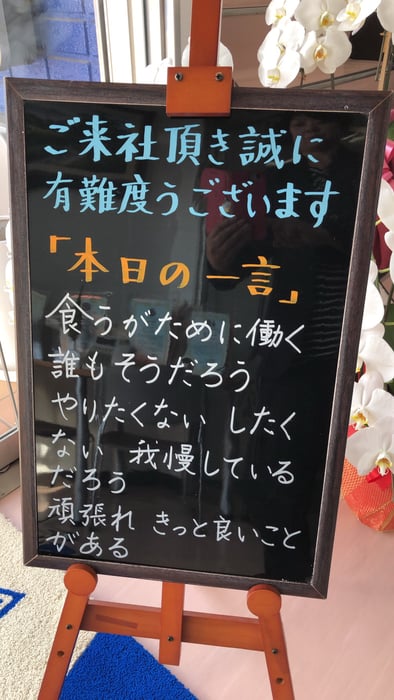 ご来社頂き誠に
有難度うございます
「本日の一言」
食うがために働く
誰もそうだろう
やりたくない したく
ない 我慢している
だろう
頑張れ きっと良いこと
がある